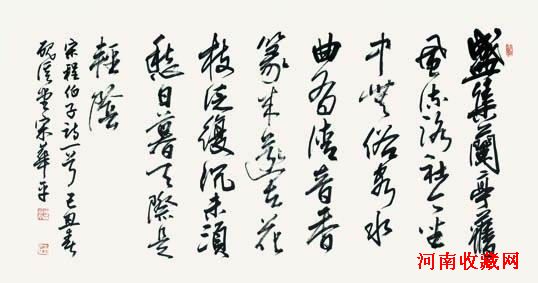 盛集蘭亭舊
風流洛社今坐
中無俗客水
曲有清音香
篆來還去花
枝泛復沉未須
愁日暮天際是
輕陰
宋程伯子詩一首己丑春
宋華平
河南收藏网